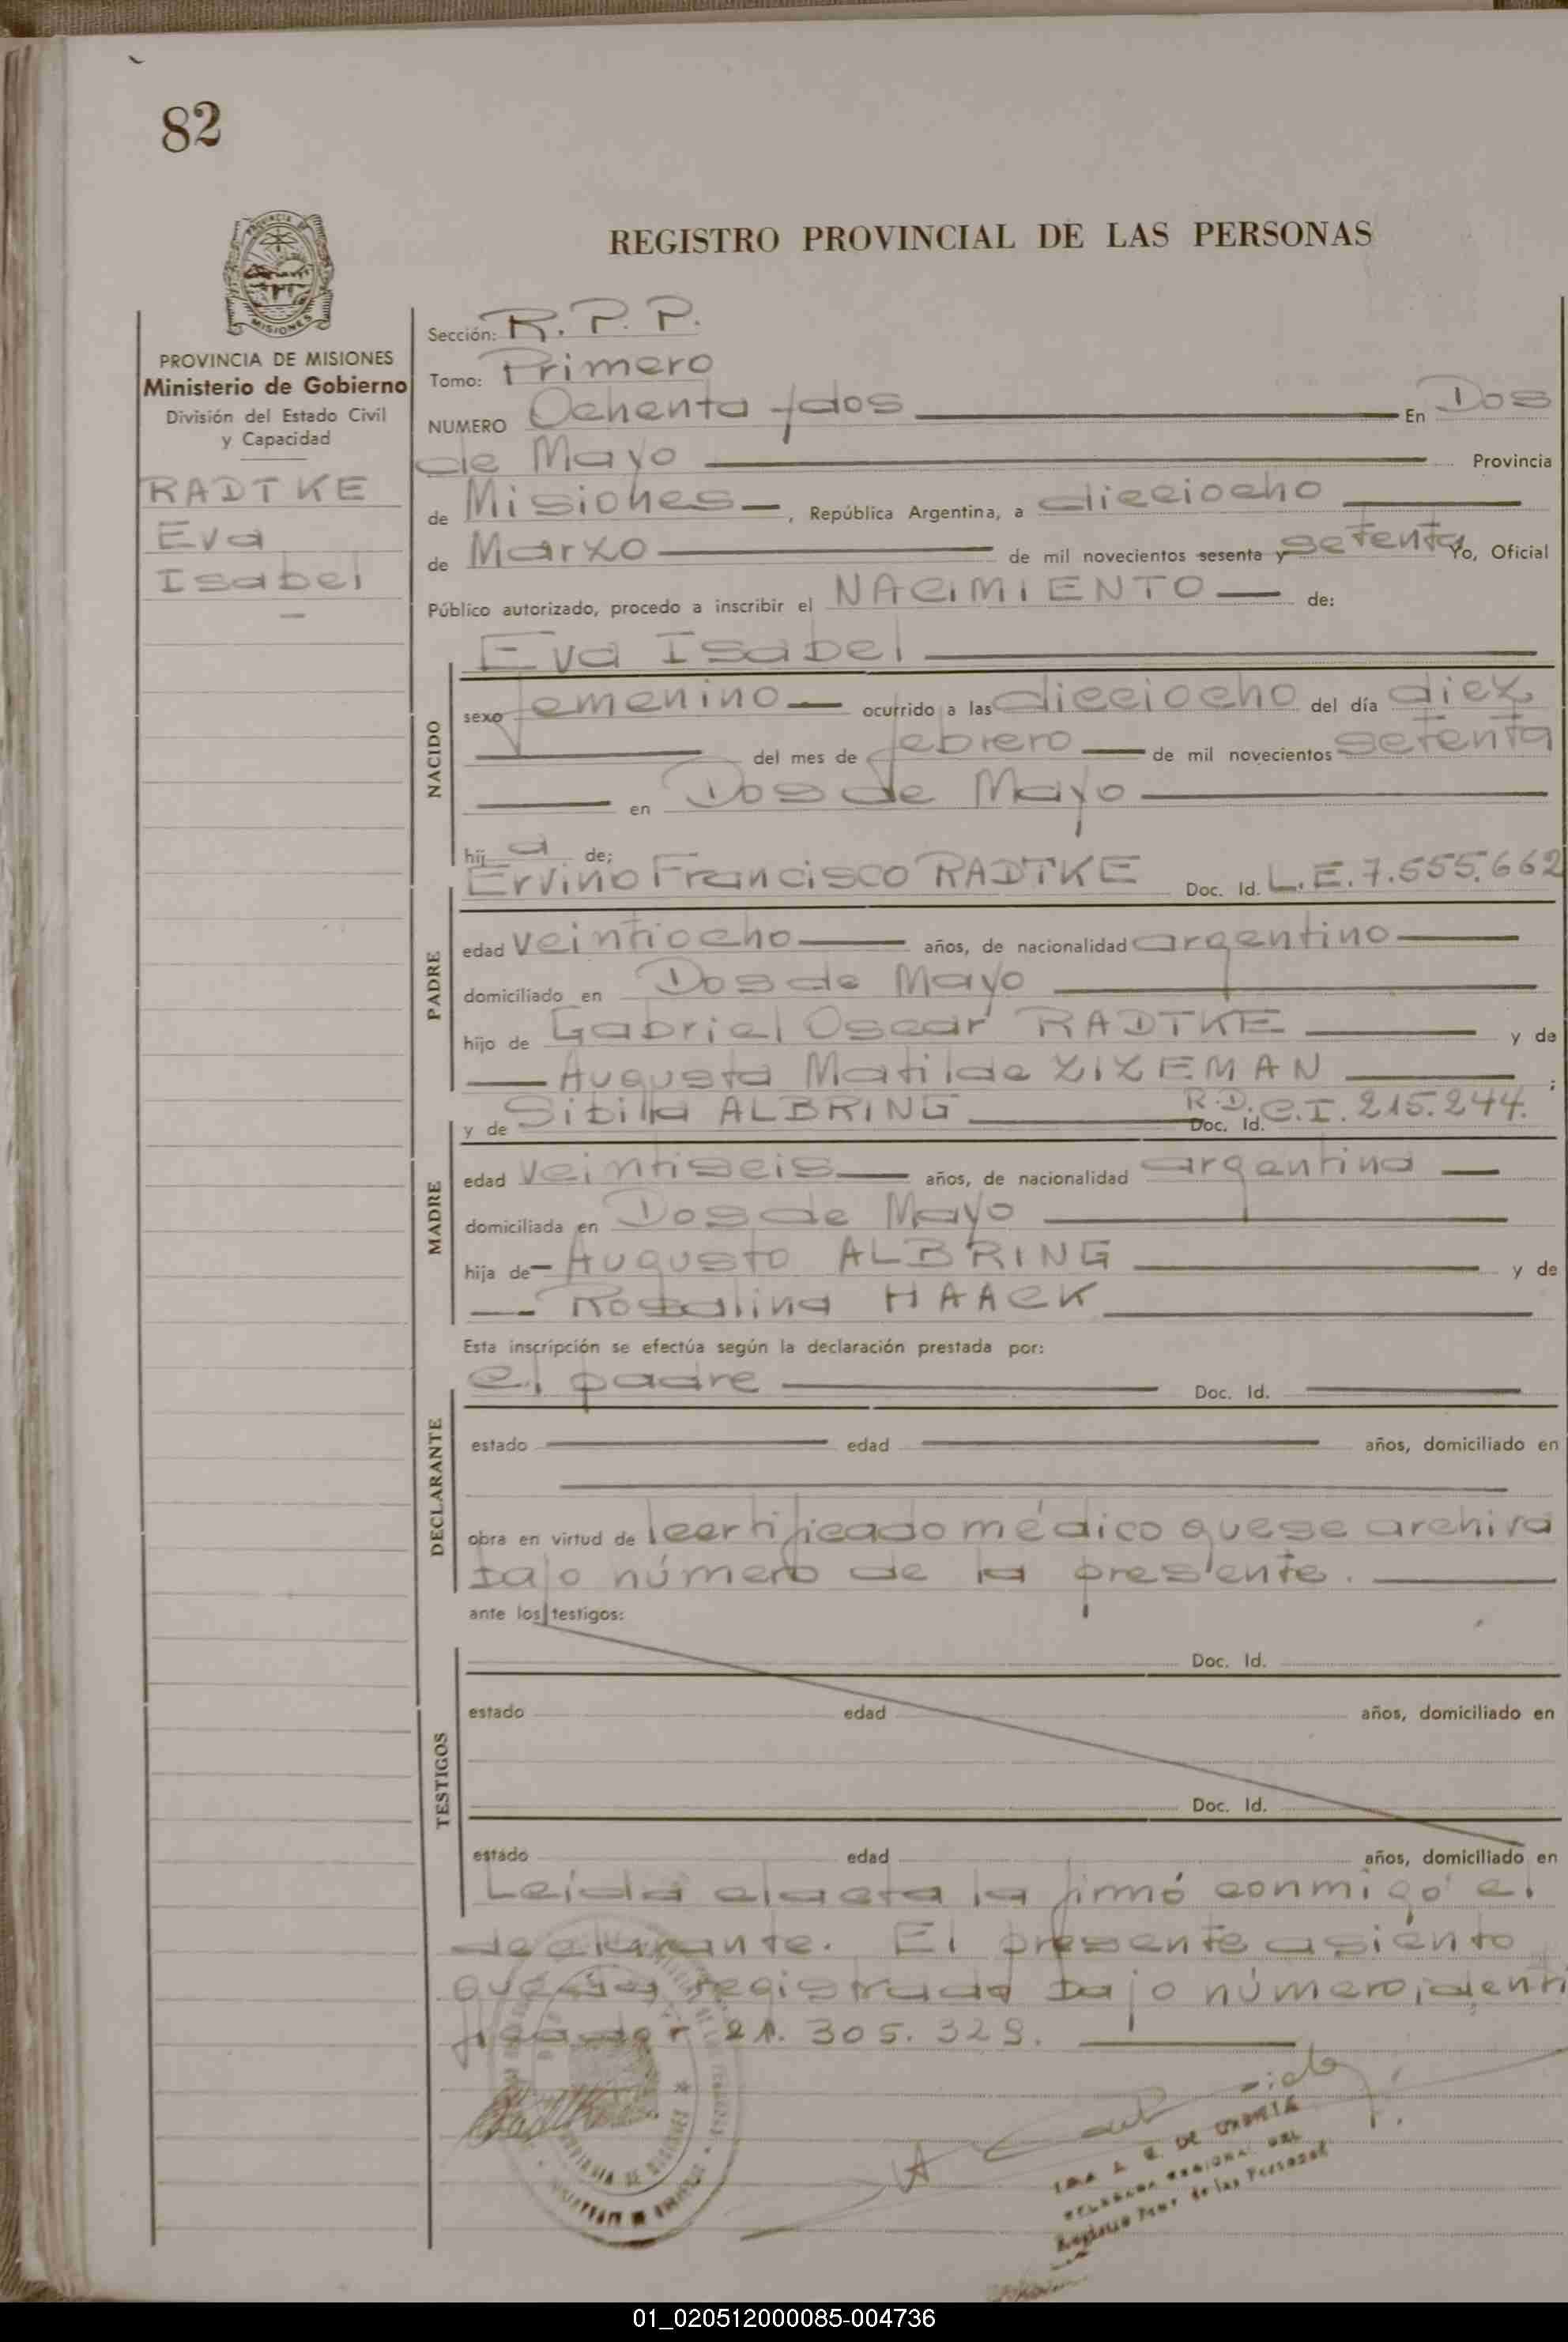 82
PROVINCIA DE
MISIONES
PROVINCIA DE MISIONES
Ministerio de Gobierno
División del Estado Civil
y Capacidad
RADTKE
Eva
Isabel
REGISTRO PROVINCIAL DE LAS PERSONAS
Sección: R. P. P.
Tomo: Primero
NUMERO Ochenta y dos En Dos
de Mayo Provincia
de Misiones, República Argentina, a dieciocho
de Marzo de mil novecientos sesenta y setenta Yo, Oficial
Público autorizado, procedo a inscribir el NACIMIENTO de:
Eva Isabel
NACIDO
sexo femenino ocurrido a las dieciocho del día diez
del mes de febrero de mil novecientos setenta
en Dos de Mayo
hij a de;
Ervino Francisco RADTKE Doc. Id. L.E. 7.555.662
PADRE
edad veintiocho años, de nacionalidad argentino
domiciliado en Dos de Mayo
hijo de Gabriel Oscar RADTKE y de
Augusta Matilde ZIZEMAN ;
y de Sibilla ALBRING R.D. Doc. Id. C.I. 215.244.
MADRE
edad veintiseis años, de nacionalidad argentina
domiciliada en Dos de Mayo
hija de Augusto ALBRING y de
Rosalina HAACK
Esta inscripción se efectúa según la declaración prestada por:
el padre Doc. Id.
DECLARANTE
estado edad años, domiciliado en
obra en virtud de certificado médico que se archiva
bajo número de la presente.
ante los testigos:
TESTIGOS
Doc. Id.
estado edad años, domiciliado en
Doc. Id.
estado edad años, domiciliado en
Leída el acta la firmó conmigo el
declarante. El presente asiento
queda registrado bajo número identi
ficador 21. 305. 329.
DE
Registro Prov. de las Personas
01_020512000085-004736